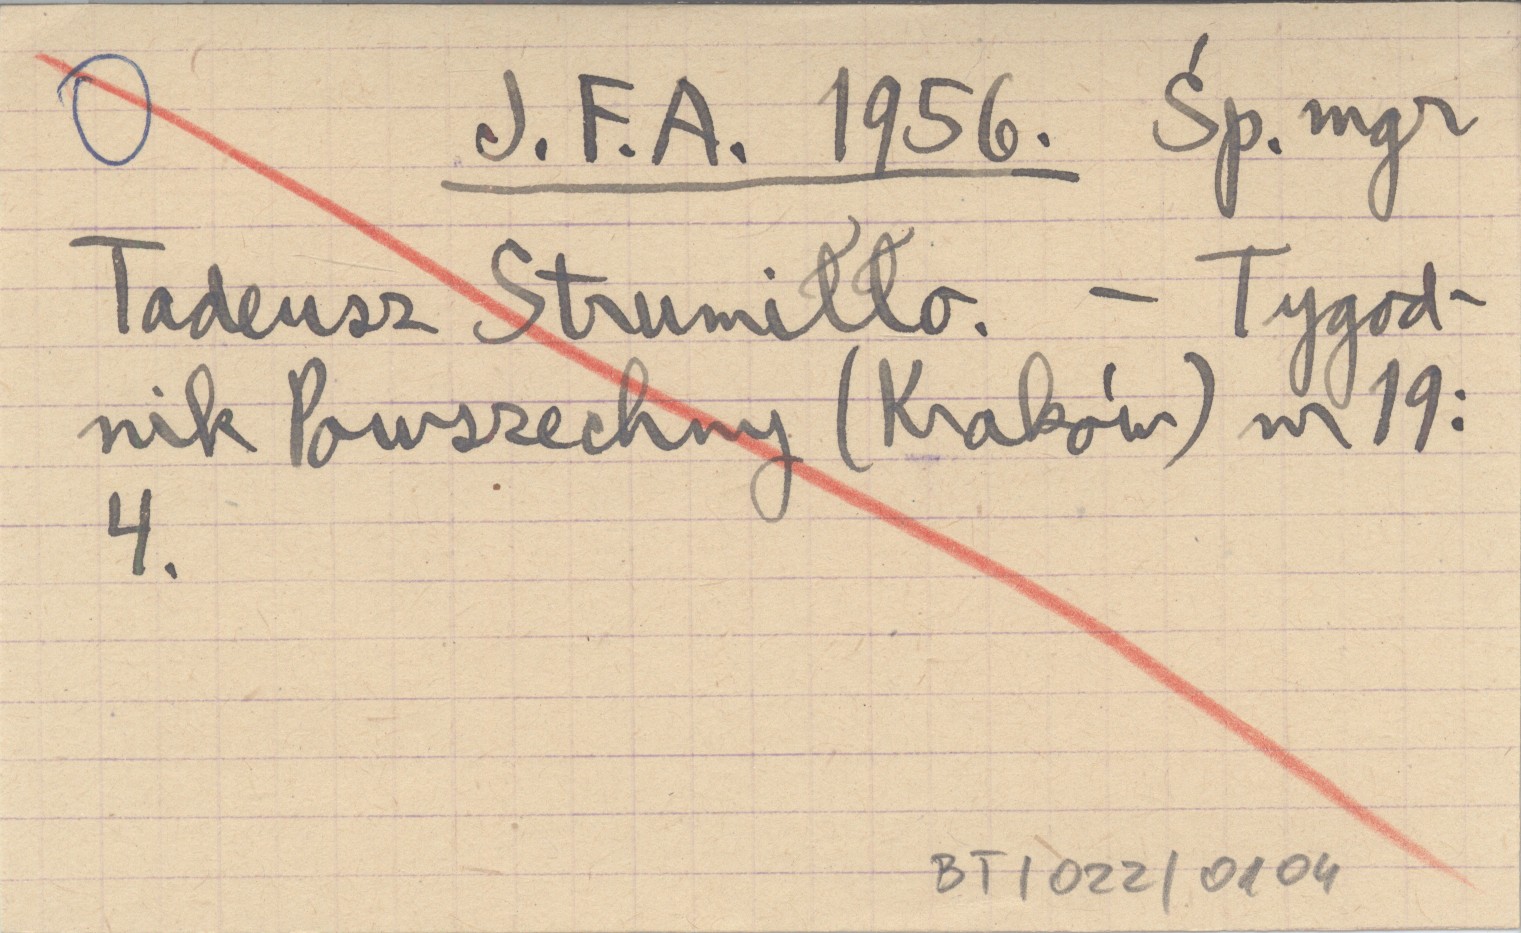 O J.F.A. 1956. Śp. mgr
Tadeusz Strumiłło. – Tygod-
nik Powszechny (Kraków) nr 19:
4.
BT/022/0104